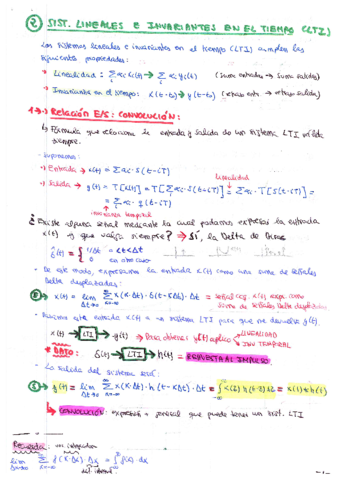 ② SIST. LINEALES E INVARIANTES EN EL TIEMPO (LTI)
Los sistemas lineales e invariantes en el tiempo (LTI) cumplen las
siguientes propiedades:
* Linealidad: Σ αi xi(t) → Σ αi yi(t) (suma entradas → suma salidas)
* Invariante en el tiempo: x(t-to) → y(t-to) (retraso entr. → retraso salida)
Relación E/S: CONVOLUCIÓN:
↳ Fórmula que relaciona la entrada y salida de un sistema LTI válida
siempre.
- Suponemos:
•) Entrada → x(t) = Σ αi · S(t-iT)
Linealidad
•) Salida → y(t) = T[x(t)] = T[Σ αi · S(t-iT)] = Σ αi · T[S(t-iT)] =
= Σ αi · g(t-iT)
invarianza temporal
¿Existe alguna señal mediante la cual podamos expresar la entrada
x(t) y que valga siempre? ⇒ SÍ, la Delta de Dirac
0 en otro caso
- De este modo, expresamos la entrada x(t) como una suma de señales
Delta desplazadas:
x(t) = lim Σ x(k·Δt) · δ(t-kΔt) · Δt = señal x(t) expr. como
Δt→0 k=-∞ suma de señales Delta desplazadas
x(t) → LTI → y(t) → Para obtener y(t) aplico LINEALIDAD
INV TEMPORAL
* DATO: δ(t) → LTI → h(t) = RESPUESTA AL IMPULSO
- La salida del sistema será:
y(t) = lim Σ x(k·Δt) · h(t-kΔt) · Δt = ∫ x(δ) h(t-δ) dδ = x(t) * h(t)
Δt→0 k=-∞
↳ CONVOLUCIÓN: expresión general que puede tener un sist. LTI
Recuerda: una integral
lim Σ f(k·Δx) · Δx = ∫ f(x) · dx
def. integral